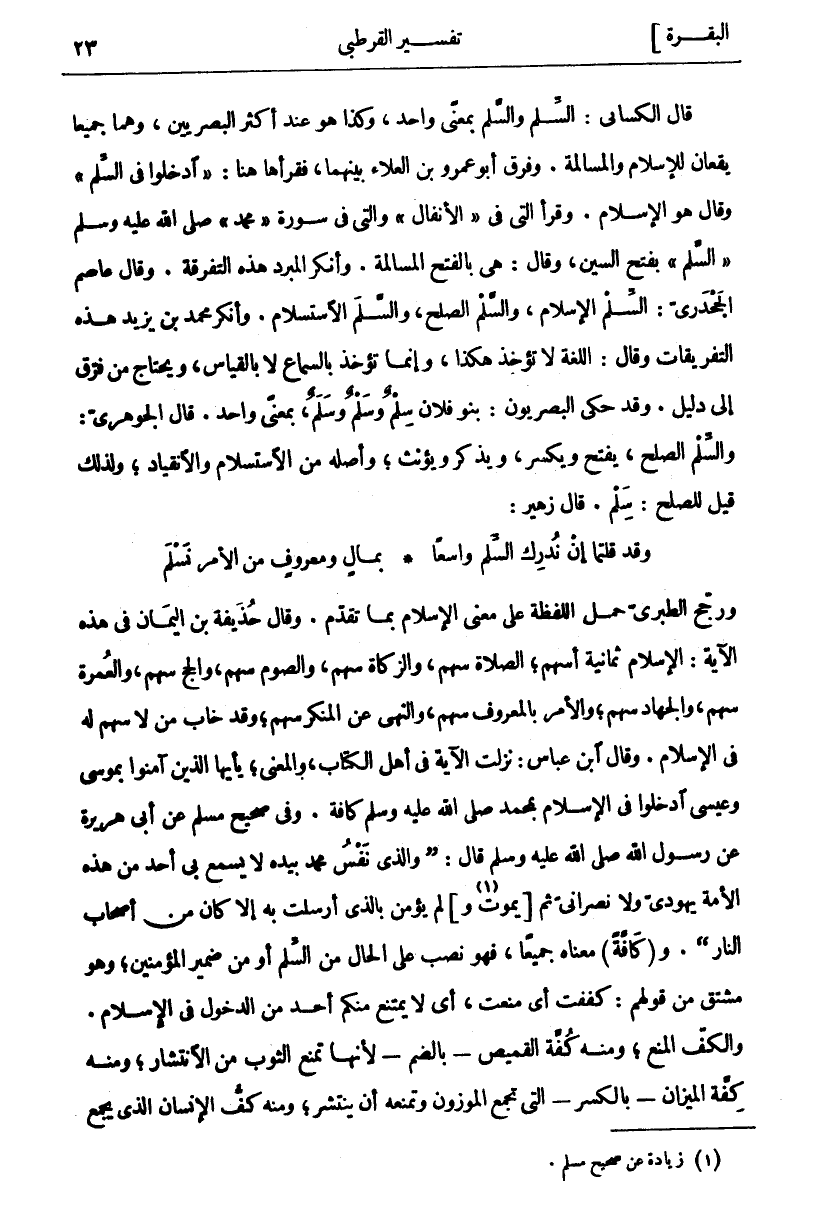 البقـــرة ]
تفســـير القرطبى
٢٣
قال الكسائى : السِّلم والسَّلم بمعنًى واحد ، وكذا هو عند أكثر البصريين ، وهما جميعا
يقعان للإسلام والمسالمة . وفرق أبو عمرو بن العلاء بينهما، فقرأها هنا : « آدخلوا فى السِّلم »
وقال هو الإسـلام . وقرأ التى فى « الأنفال » والتى فى سـورة « محمد » صلى الله عليه وسـلم
« السَّلم » بفتح السين، وقال : هى بالفتح المسالمة . وأنكر المبرد هذه التفرقة . وقال عاصم
الجَحْدَرىّ : السِّـلْم الإسلام ، والسَّلْم الصلح، والسَّـلَم الآستسلام . وأنكر محمد بن يزيد هـذه
التفريقات وقال : اللغة لا تؤخذ هكذا ، وإنمـا تؤخذ بالسماع لا بالقياس، ويحتاج من فرّق
إلى دليل . وقد حكى البصريون : بنو فلان سِلْمٌ وسَلْمٌ وسَلَمٌ، بمعنًى واحد . قال الجوهرىّ :
والسِّلْم الصلح ، يفتح ويكسر ، ويذكر ويؤنث ؛ وأصله من الآستسلام والآنقياد ؛ ولذلك
قيل للصلح : سَِلْم . قال زهير :
وقد قلتما إنْ نُدرِك السِّلم واسعًا * بمـالٍ ومعروفٍ من الأمر نَسْلَم
ورجّح الطبرىّ حمـل اللفظة على معنى الإسلام بمـا تقدّم . وقال حُذَيفة بن اليمَـان فى هذه
الآية : الإسلام ثمانية أسهم؛ الصلاة سهم ، والزكاة سهم، والصوم سهم،والحج سهم،والعُمرة
سهم،والجهاد سهم؛والأمر بالمعروف سهم،والنهى عن المنكر سهم؛وقد خاب من لا سهم له
فى الإسلام . وقال آبن عباس : نزلت الآية فى أهل الكتاب،والمعنى؛ يأيها الذين آمنوا بموسى
وعيسى آدخلوا فى الإسـلام بمحمد صلى الله عليه وسلم كافة . وفى صحيح مسلم عن أبى هريرة
عن رسـول الله صلى الله عليه وسلم قال : ” والذى نَفْسُ محمد بيده لا يسمع بى أحد من هذه
الأمة يهودىّ ولا نصرانىّ ثم [يموت و](١) لم يؤمن بالذى أرسلت به إلا كان من أصحاب
النار “ . و (كَافَّةً) معناه جميعًا ، فهو نصب على الحال من السِّلم أو من ضمير المؤمنين؛ وهو
مشتق من قولهم : كففت أى منعت ، أى لا يمتنع منكم أحـد من الدخول فى الإسـلام .
والكفّ المنع ؛ ومنـه كُفَّة القميص — بالضم — لأنهـا تمنع الثوب من الآنتشار ؛ ومنـه
كِفَّة الميزان — بالكسر — التى تجمع الموزون وتمنعه أن ينتشر؛ ومنه كفُّ الإنسان الذى يجمع
(١) زيادة عن صحيح مسلم .